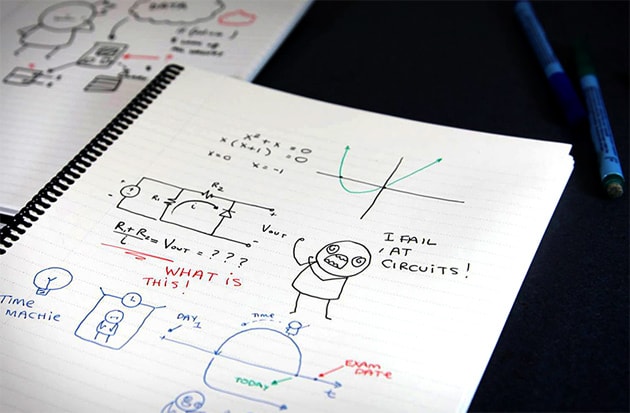 DATA
x² + x = 0
x(x+1) = 0
x=0 x=-1
R2
R1
L
Vout
R1+R2/L = Vout = ???
WHAT IS
THIS!
I FAIL
AT
CIRCUITS!
TIME
MACHIE
DAY
1
Time
TODAY
EXAM
DATE
t